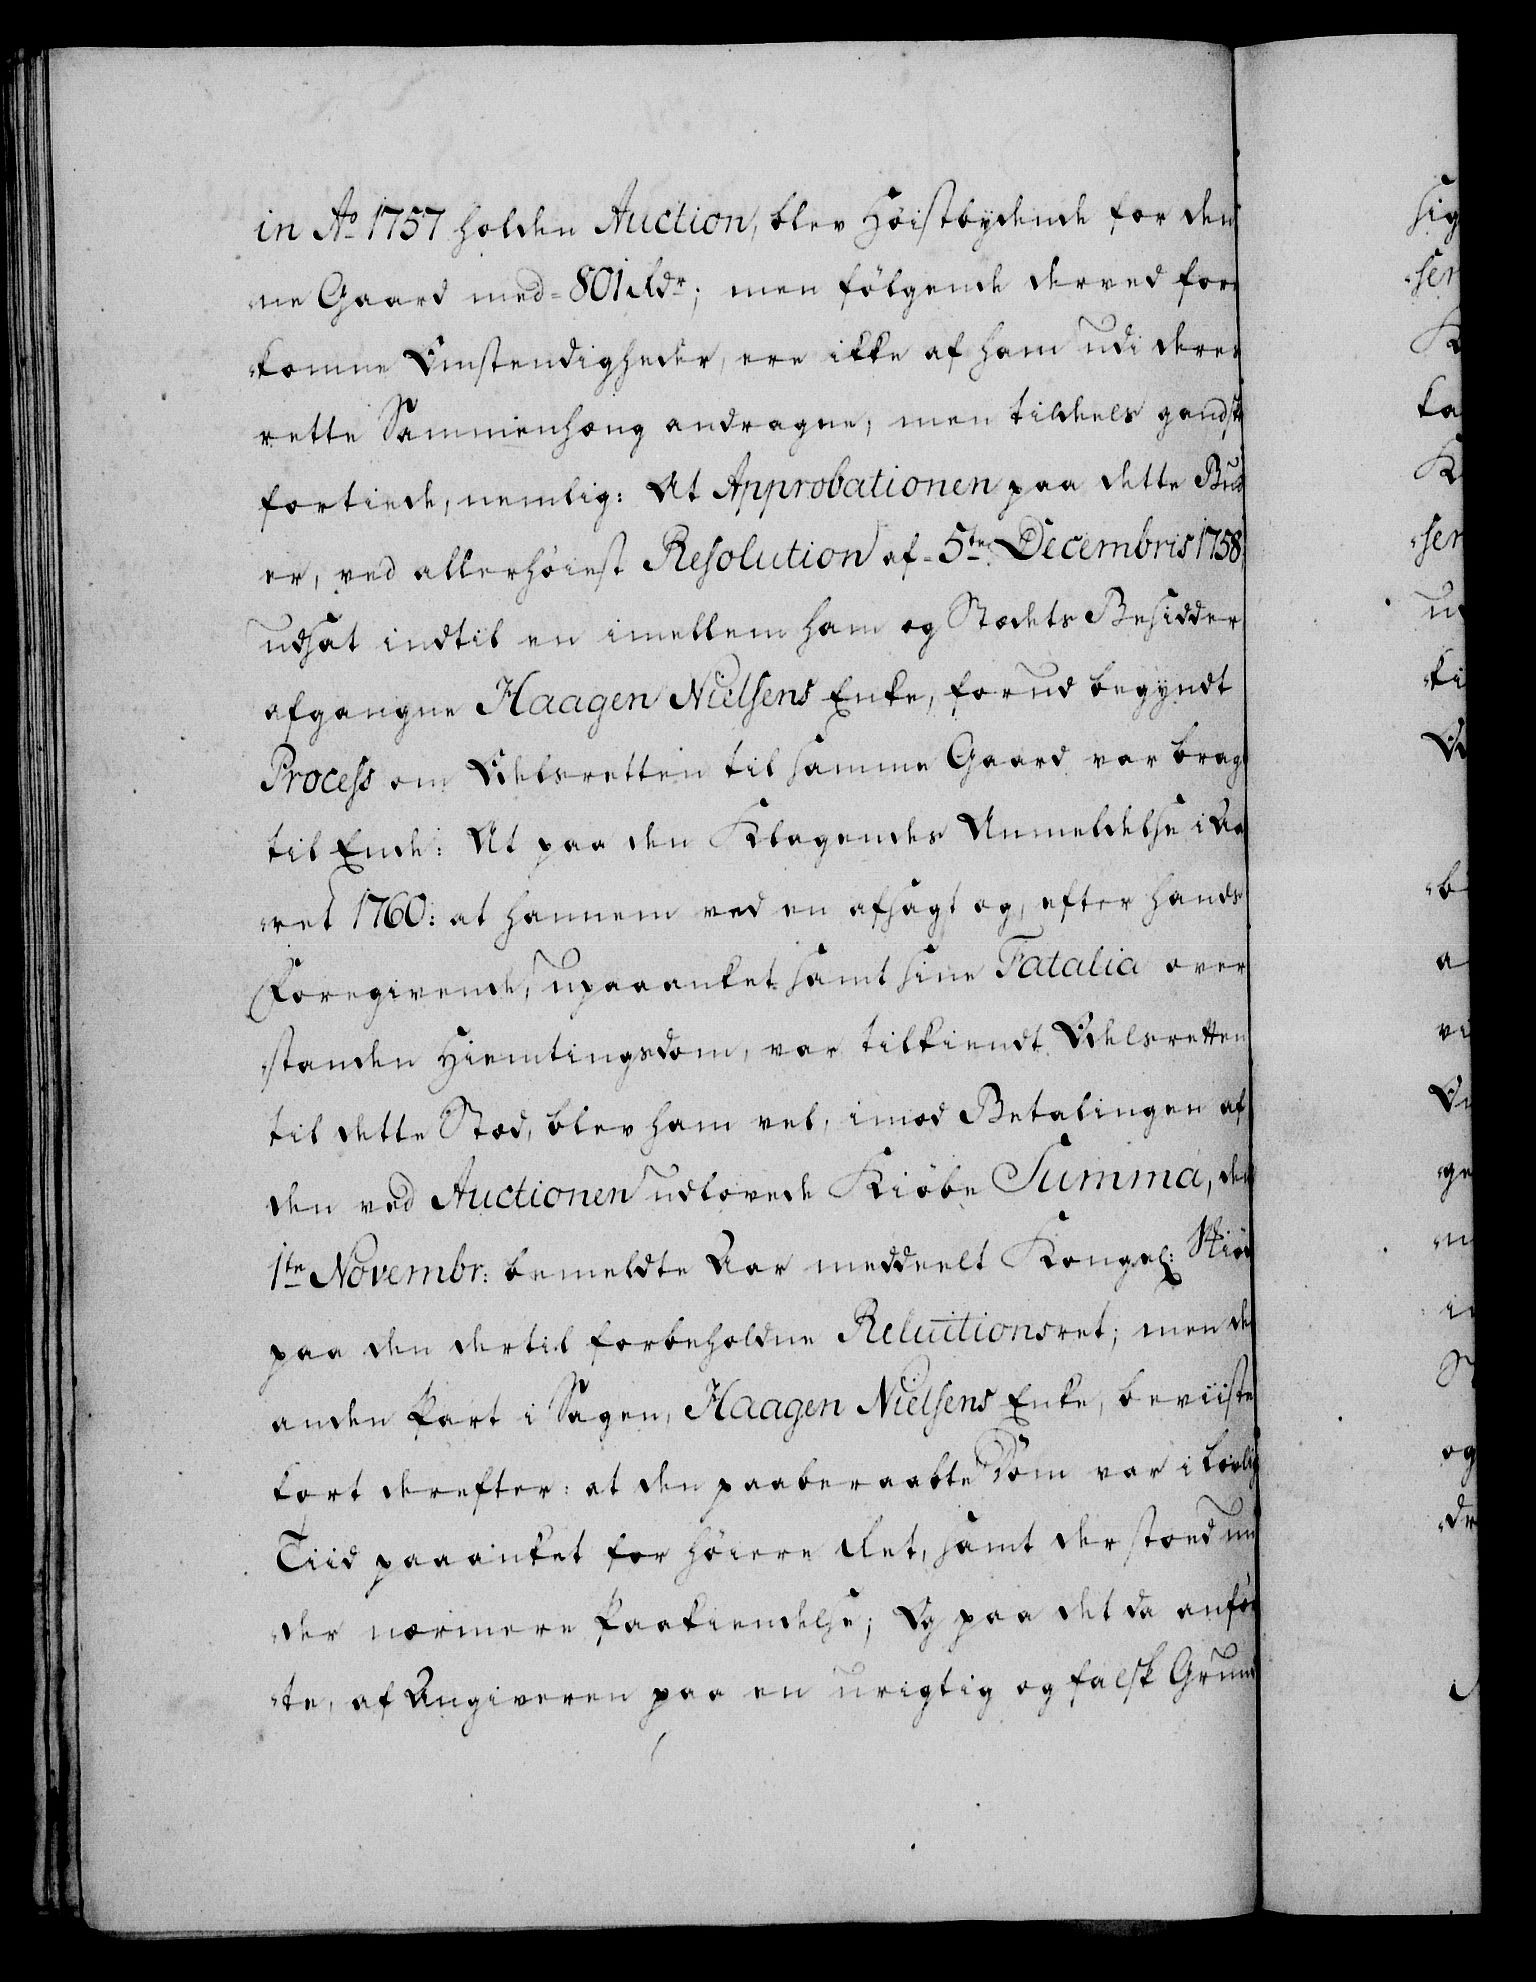 in Ao 1757 holden Auction, blev Höistbydende for den
-ne Gaard med 801 Rdr; men fölgende derved fore
-komne Omstendigheder, ere ikke af ham udi deres
rette Sammenhæng andragne, men tildeels gandske
fortiede, nemlig: At Approbationen paa dette Bud
er, ved allerhöiest Resolution af 5te Decembris 1758,
udsat indtil en imellem ham og Stædets Besidder
afgangne Haagen Nielsens Enke, forud begyndt
Process om Odelsretten til samme Gaard var bragt
til Ende: At paa den Klagendes Anmeldelse i Aa
-ret 1760: at hannem ved en afsagt og, efter hands
Foregivende, upaaanket samt sine Fatalia over
-standen Hiemtingsdom, var tilkiendt Odelsretten
til dette Stæd, blev ham vel, imod Betalingen af
den ved Auctionen udlovede Kiöbe Summa, den
1te Novembr: bemeldte Aar meddeelt Kongel: Skiöde
paa den dertil forbeholdne Reluitionsret; men den
anden Part i Sagen, Haagen Nielsens Enke, beviiste
kort derefter: at den paaberaabte Dom var i lovlig
Tiid paaanket for höiere Ret, samt der stoed un
-der nærmere Paakiendelse; Og paa det da anför
-te, af Angiveren paa en urigtig og falsk Grund